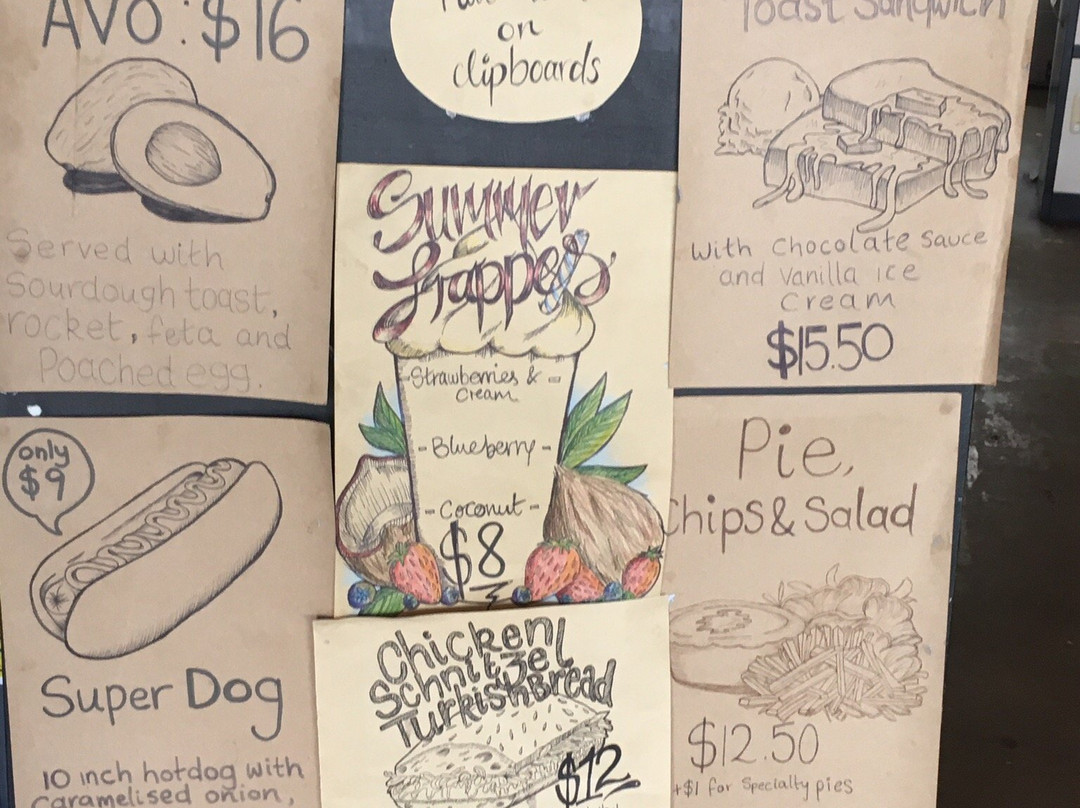 AVO: $16
Served with
Sourdough toast,
rocket, feta and
Poached egg.
only
$9
Super Dog
10 inch hotdog with
Caramelised onion,
on
clipboards
Summer
frappes
-Strawberries & -
Cream
-Blueberry-
-Coconut-
$8
Chicken
Schnitzel
Turkish Bread
$12
Toast Sandwich
With Chocolate Sauce
and Vanilla ice
Cream
$15.50
Pie,
Chips & Salad
$12.50
+$1 for Specialty pies